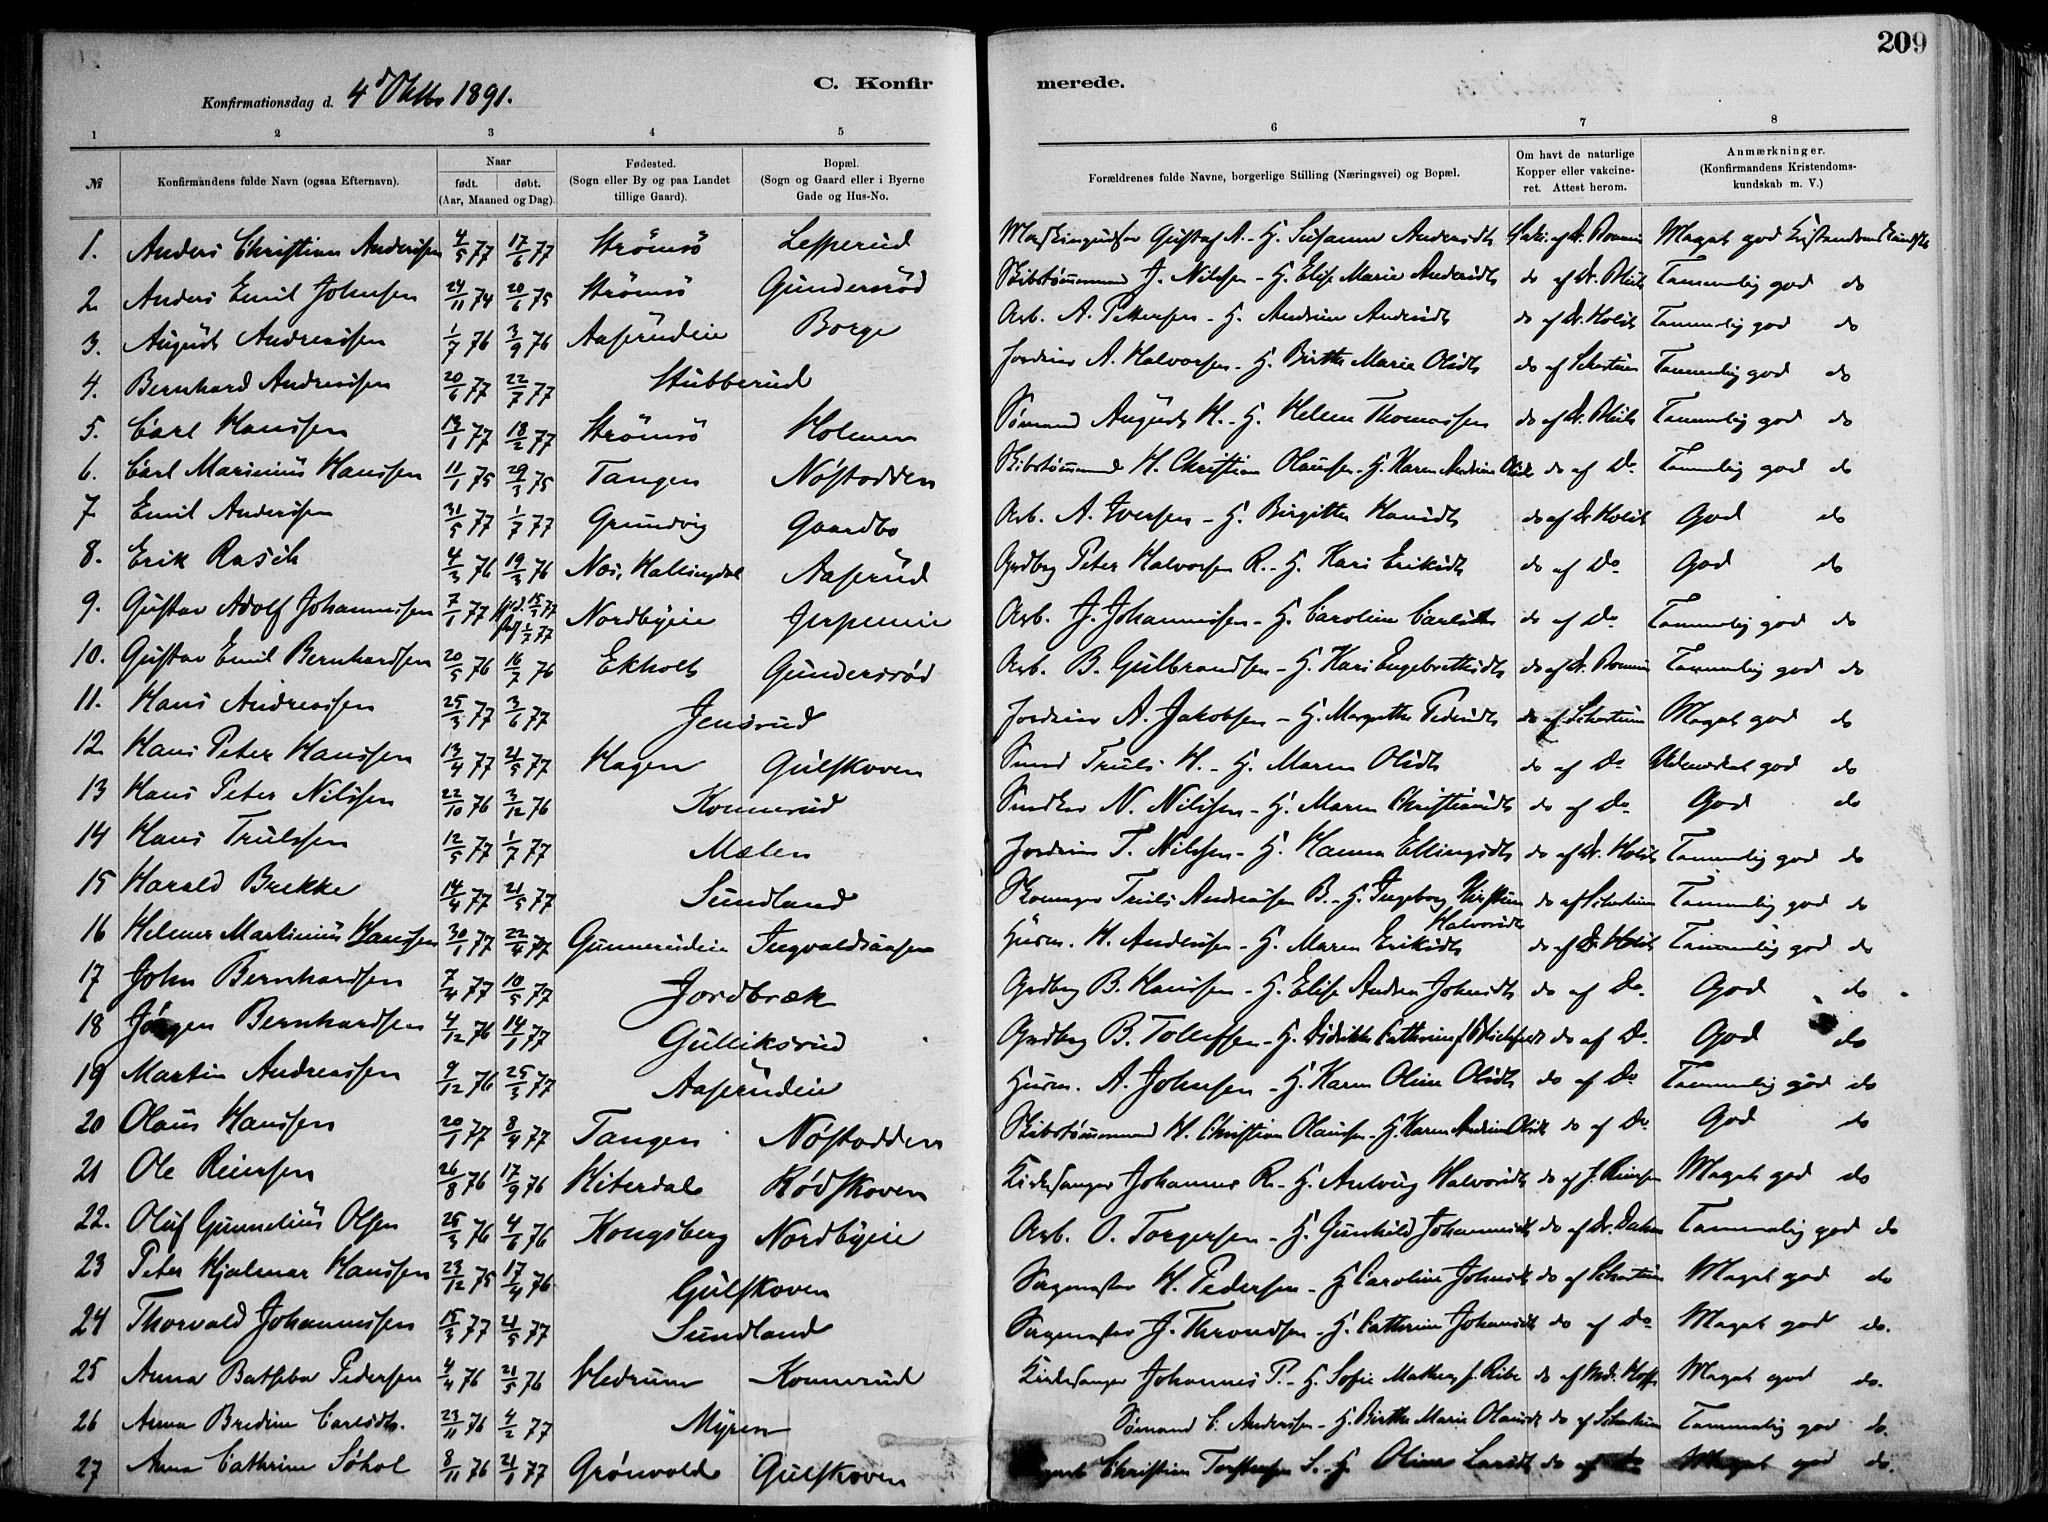 209
Konfirmationsdag d. 4d Oktbr 1891.
C. Konfirmerede.
1 2 3 4 5 6 7 8
№ Konfirmandens fulde Navn (ogsaa Efternavn). Naar født. døbt. (Aar, Maaned og Dag). Fødested. (Sogn eller By og paa Landet tillige Gaard). Bopæl. (Sogn og Gaard eller i Byerne Gade og Hus-No. Forældrenes fulde Navne, borgerlige Stilling (Næringsvei) og Bopæl. Om havt de naturlige Kopper eller vakcineret. Attest herom. Anmærkninger. (Konfirmandens Kristendomskundskab m. V.)
1. Anders Christian Anderssen 4/5 77 17/6 77 Strömsö Lesperud Gustaf A. - H. Susanne Andersdt Meget god Kristendomskundsk
2. Anders Emil Johnsen 24/11 74 20/6 75 Strömsö Gundersröd Skibstømmermand J. Nilssen - H. Elise Marie Andersdt do af Dr. Tammelig god do
3. August Andreassen 1/7 76 3/9 76 Aaserudeie Borge Arb. A. Pettersen - H. Andrine Andersdt do af Dr. Holst Tammelig god do
4. Bernhard Andreassen 20/6 77 22/7 77 Stubberud Jordeier A. Halvorsen - H. Birthe Marie Olsdt do af Schartum Tammelig god do
5. Carl Hanssen 19/1 77 18/2 77 Strömsö Holmen Sømand August H. - H. Helene Thomassen do af Dr. Tammelig god do
6. Carl Marinius Hanssen 11/1 75 29/3 75 Tangen Nøstodden Skibstømmermand H. Christian Olaussen - H. Karen Andrine Olsdt do af Do Tammelig god do
7. Emil Anderssen 31/5 77 1/7 77 Grundvig Gaardbo Arb. A. Iversen - H. Birgitte Hansdt do af Dr Holst God do
8. Erik Rasch 4/3 76 19/3 76 Nes, Hallingdal Aaserud Grdbrg Peter Halvorsen R. - H. Kari Eriksdt do af Do God do
9. Gustav Adolf Johannessen 7/1 77 Hjd. 15/1 77 1/7 77 Nordbyeie Jerpeneie Arb. J. Johannessen - H. Caroline Carlsdt do af Do Tammelig god do
10. Gustav Emil Bernhardsen 20/5 76 16/7 76 Ekholt Gundersrød Arb. B. Gulbrandsen - H. Kari Engebrethsdt do af Dr. Tammelig god do
11. Hans Andreassen 25/3 77 3/6 77 Jensrud Jordeier A. Jakobsen - H. Margrethe Pedersdt do af Schartum Meget god do
12 Hans Peter Hanssen 13/4 77 21/5 77 Hagen Gulskoven Smed Truls H. - H. Maren Olsdt do af Do Udmerket god do
13 Hans Peter Nilssen 22/10 76 3/12 76 Konnerud Snedker N. Nilssen - H. Maren Christiansdt do af Do God do
14 Hans Trulssen 12/5 77 1/7 77 Mælen Jordeier T. Nilssen - H. Hanna Ellingsdt do af Dr. Holst Tammelig god do
15 Harald Brekke 14/4 77 21/5 77 Sundland Truls Andreassen B. - H. Ingeborg Kirstine Halvorsdt do af Schartum Tammelig god do
16 Helmer Martinius Hanssen 30/1 77 22/4 77 Gunnerudeie Ingvaldsaasen Husm. H. Anderssen - H. Maren Eriksdt do af Dr. Holst Tammelig god do
17 John Bernhardsen 7/4 77 10/5 77 Jordbræk Grdbrg B. Hanssen - H. Elise Andrea Johnsdt do af Do God do
18 Jørgen Bernhardsen 4/12 76 14/1 77 Gulliksrud Grdbrg B. Tollefsen - H. Didrikke Cathrine f. Blichfeldt do af Do God do
19 Martin Andreassen 9/12 76 25/3 77 Aaserudeie Husm. A. Johnsen - H. Karen Oline Olsdt do af Do Tammelig god do
20 Olaus Hanssen 20/1 77 8/4 77 Tangen Nøstodden Skibstømmermand H. Christian Olaussen - H. Karen Andrine Olsdt do af Do God do
21 Ole Reiersen 26/8 76 17/9 76 Hiterdal Rødskoven Kirkesanger Johannes R. - H. Anlaug Halvorsdt do af J. Reiersen Meget god do
22. Oluf Gunnelius Olsen 25/3 76 4/6 76 Kongsberg Nordbyeie Arb. O. Torgersen - H. Gunhild Johannesdt do af Dr. Dahm Tammelig god do
23 Peter Hjalmar Hanssen 23/12 75 17/4 76 Gulskoven Sagmester H. Pedersen - H. Caroline Johnsdt do af Schartum Meget god do
24 Thorvald Johannessen 15/3 77 21/5 77 Sundland Sagmester J. Throndsen - H. Cathrine Johansdt do af Do Meget god do.
25 Anna Batseba Pedersen 4/4 76 21/5 76 Hedrum Konnerud Kirkesanger Johannes P. - H. Sofie Mathea f. Ribe do af Md. Hoff Meget god do.
26 Anna Bredine Carlsdt. 23/11 76 4/2 77 Myren Sømand C. Anderssen - H. Birthe Marie Olausdt do af Schartum Tammelig god do.
27 Anna Cathrine Søhol 8/11 76 21/1 77 Grønvold Gulskoven Christian Torstensen S. - H. Oline Larsdt do af Do Meget god do.